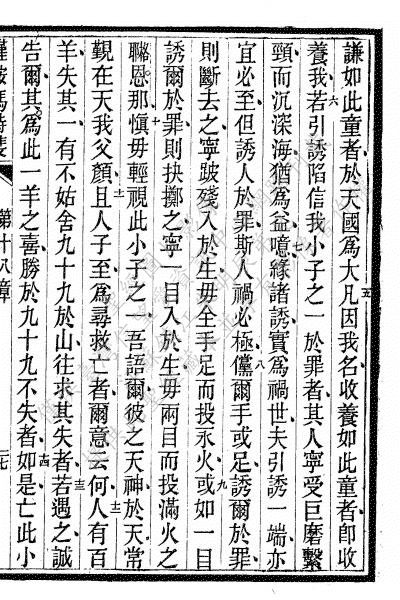 謙如此童者於天國為大凡因我名收養如此童者卽收
養我若引誘陷信我小子之一於罪者其人寧受巨磨繫
頸而沉深海猶為益噫緣諸誘實為禍世夫引誘一端亦
宜必至但誘人於罪斯人禍必極儻爾手或足誘爾於罪
則斷去之寧跛殘入於生毋全手足而投永火或如一目
誘爾於罪則抉擲之寧一目入於生毋兩目而投滿火之
聮恩那愼毋輕視此小子之一吾語爾彼之天神於天常
覲在天我父顏且人子至為尋救亡者爾意云何人有百
羊失其一有不姑舍九十九於山往求其失者若遇之誠
告爾其為此一羊之喜勝於九十九不失者如是亡此小
第十八章